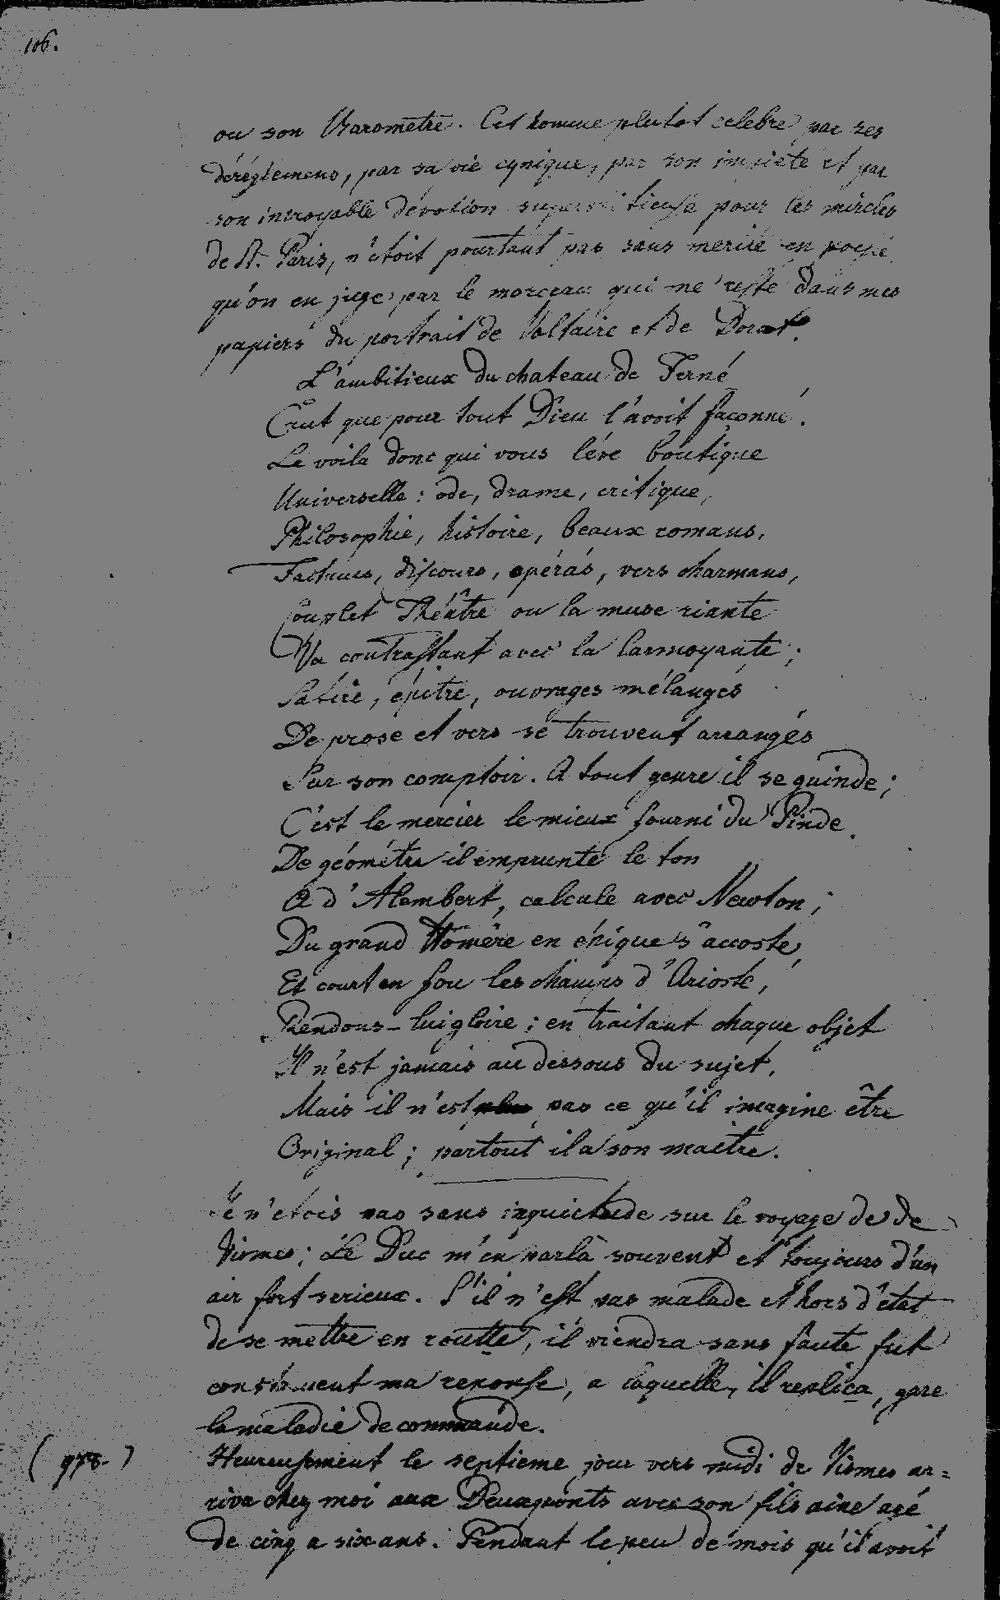 106.
ou son Barometre. Cet homme plutot celebre par ses
déréglemens, par sa vie cynique, par son impieté et par
son incroyable dévotion superstitieuse pour les mircles
de St. Paris, n'étoit pourtant pas sans merite en poesie
qu'on en juge par le morceau qui me reste dans mes
papiers du portrait de Voltaire et de Dorat.
L'ambitieux du chateau de Ferné
Crut que pour tout Dieu l'avoit façonné.
Le voila donc qui vous léve boutique
Universelle: ode, drame, critique,
Philosophie, histoire, beaux romans,
Factums, discours, opérás, vers charmans,
Couplet Théâtre ou la muse riante
Va contrastant avec la larmoyante;
Satire, épitre, ouvrages mélangés
De prose et vers se trouvent arrangés
Sur son comptoir. A tout genre il se guinde;
C'est le mercier le mieux fourni du Pinde.
De géométre il emprunte le ton
A d'Alembert, calcule avec Newton;
Du grand Homére en épique s'accoste,
Et court en fou les champs d'Arioste,
Rendons-lui gloire; en traitant chaque objet
Il n'est jamais au dessous du sujet,
Mais il n'est pas ce qu'il imagine être
Original; partout il a son maitre.
Je n'etois pas sans inquietude sur le voyage de de
Vismes; Le Duc m'en parla souvent et toujours d'un
air fort serieux. S'il n'est pas malade et hors d'état
de se mettre en routte, il viendra sans faute fut
constament ma reponse, a laquelle, il replica, gare
la maladie de commande.
(978.) Heureusement le septieme jour vers midi de Vismes ar=
riva chez moi aux Deuxponts avec son fils ainé agé
de cinq a six ans. Pendant le peu de mois qu'il avoit